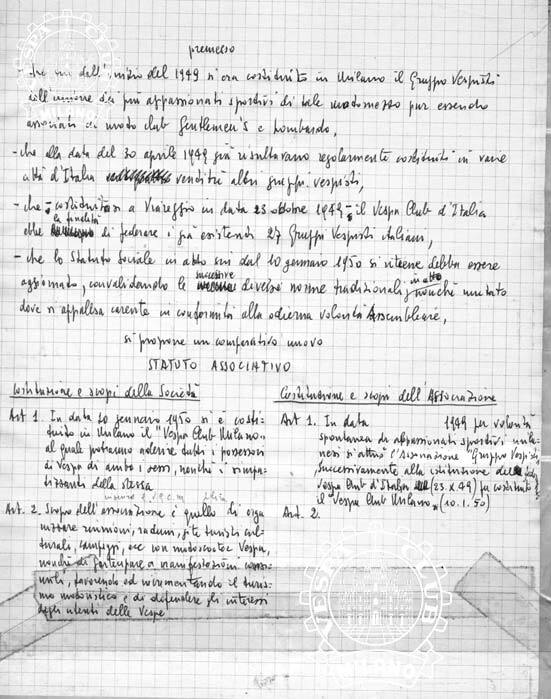 premesso
- che sin dall'inizio del 1949 si era costituito in Milano il Gruppo Vespisti
dei più appassionati sportivi di tale motomezzo pur essendo
associati di moto club Gentlemen's e Lombardo,
- che alla data del 30 aprile 1949 già risultavano regolarmente costituiti in varie
città d'Italia ventitré altri gruppi vespisti,
- che costituitosi a Viareggio in data 23 ottobre 1949 il Vespa Club d'Italia
ebbe la finalità di federare i già esistenti 27 Gruppi Vespisti italiani,
- che lo Statuto Sociale in atto sin dal 10 gennaio 1950 si ritiene debba essere
aggiornato, convalidando le successive norme tradizionali in atto nonché mutato
dove si appalesa carente in conformità alla odierna volontà Assembleare,
si propone un comparativo nuovo
STATUTO ASSOCIATIVO
Costituzione e scopi della Società
Art 1. In data 10 gennaio 1950 si è costi-
tuito in Milano il "Vespa Club Milano"
al quale potranno aderire tutti i possessori
di Vespa di ambo i sessi, nonché i simpa-
tizzanti della stessa
Art. 2. Scopo dell'associazione è quello di orga
nizzare riunioni, raduni, gite turistiche cul-
turali, campeggi, ecc con motoscooter Vespa,
nonché di partecipare a manifestazioni consi-
mili, favorendo ed incrementando il turis-
mo motoristico e di difendere gli interessi
degli utenti delle Vespe
Costituzione e scopi dell'Associazione
Art 1. In data 1949 per volontà
spontanea di appassionati sportivi mila-
nesi si attuò l'Associazione "Gruppo Vespisti
successivamente alla costituzione del
Vespa Club d'Italia (23.X.49) fu costituito
il "Vespa Club Milano" (10.1.50)
Art 2.
VESPA CLUB
MILANO